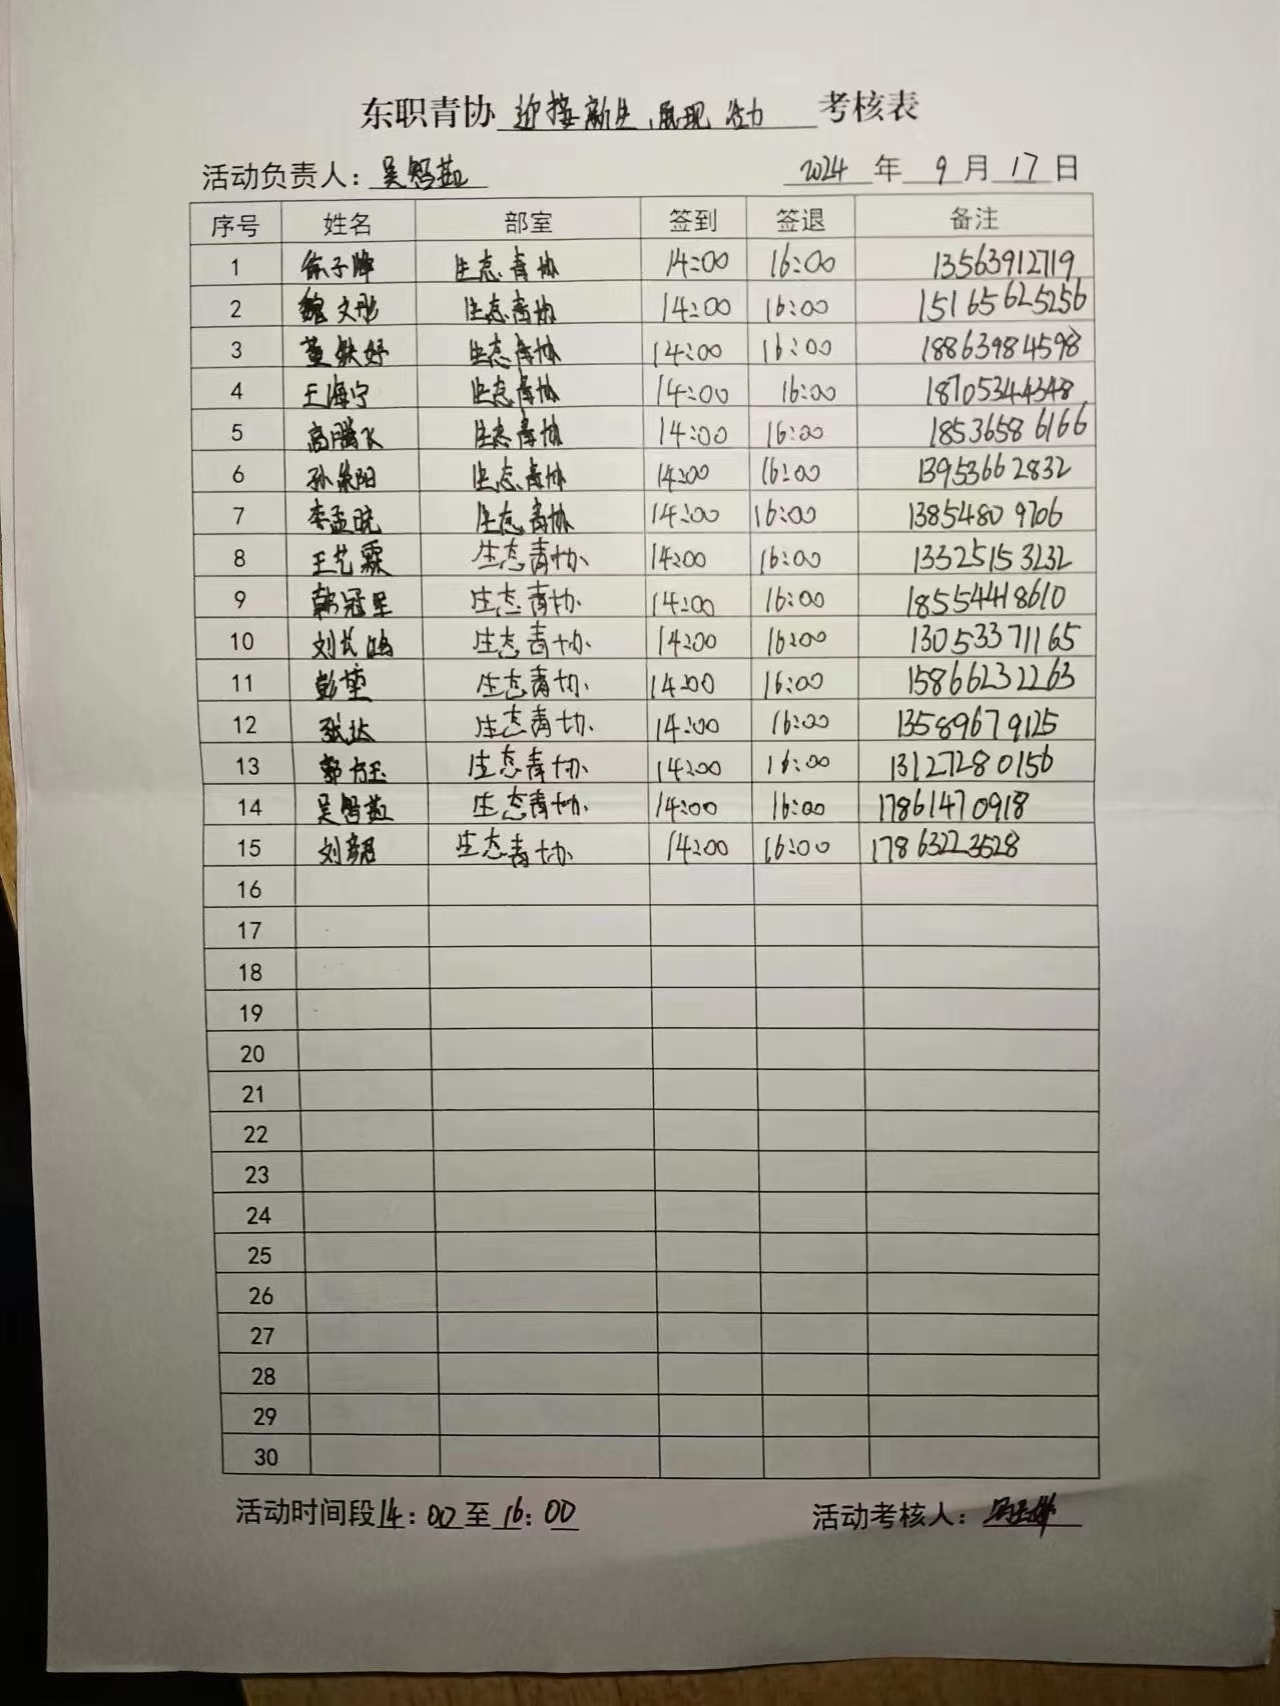 东职青协 迎接新生,展现活力 考核表
活动负责人: 吴 2024 年 9 月 17 日
序号 姓名 部室 签到 签退 备注
1 生态青协 14:00 16:00 13563912719
2 魏文彤 生态青协 14:00 16:00 15165625256
3 董 生态青协 14:00 16:00 18863984598
4 王海宁 生态青协 14:00 16:00 18705344348
5 高腾飞 生态青协 14:00 16:00 18536586166
6 孙 阳 生态青协 14:00 16:00 13953662832
7 李孟 生态青协 14:00 16:00 13854809706
8 王艺霖 生态青协 14:00 16:00 13325153232
9 韩冠 生态青协 14:00 16:00 18554418610
10 刘长鸿 生态青协 14:00 16:00 13053371165
11 彭 生态青协 14:00 16:00 15866232263
12 张达 生态青协 14:00 16:00 13589679125
13 郭方玉 生态青协 14:00 16:00 13127280156
14 吴 生态青协 14:00 16:00 17861470918
15 刘 生态青协 14:00 16:00 17863223528
16
17
18
19
20
21
22
23
24
25
26
27
28
29
30
活动时间段 14:00 至 16:00 活动考核人: